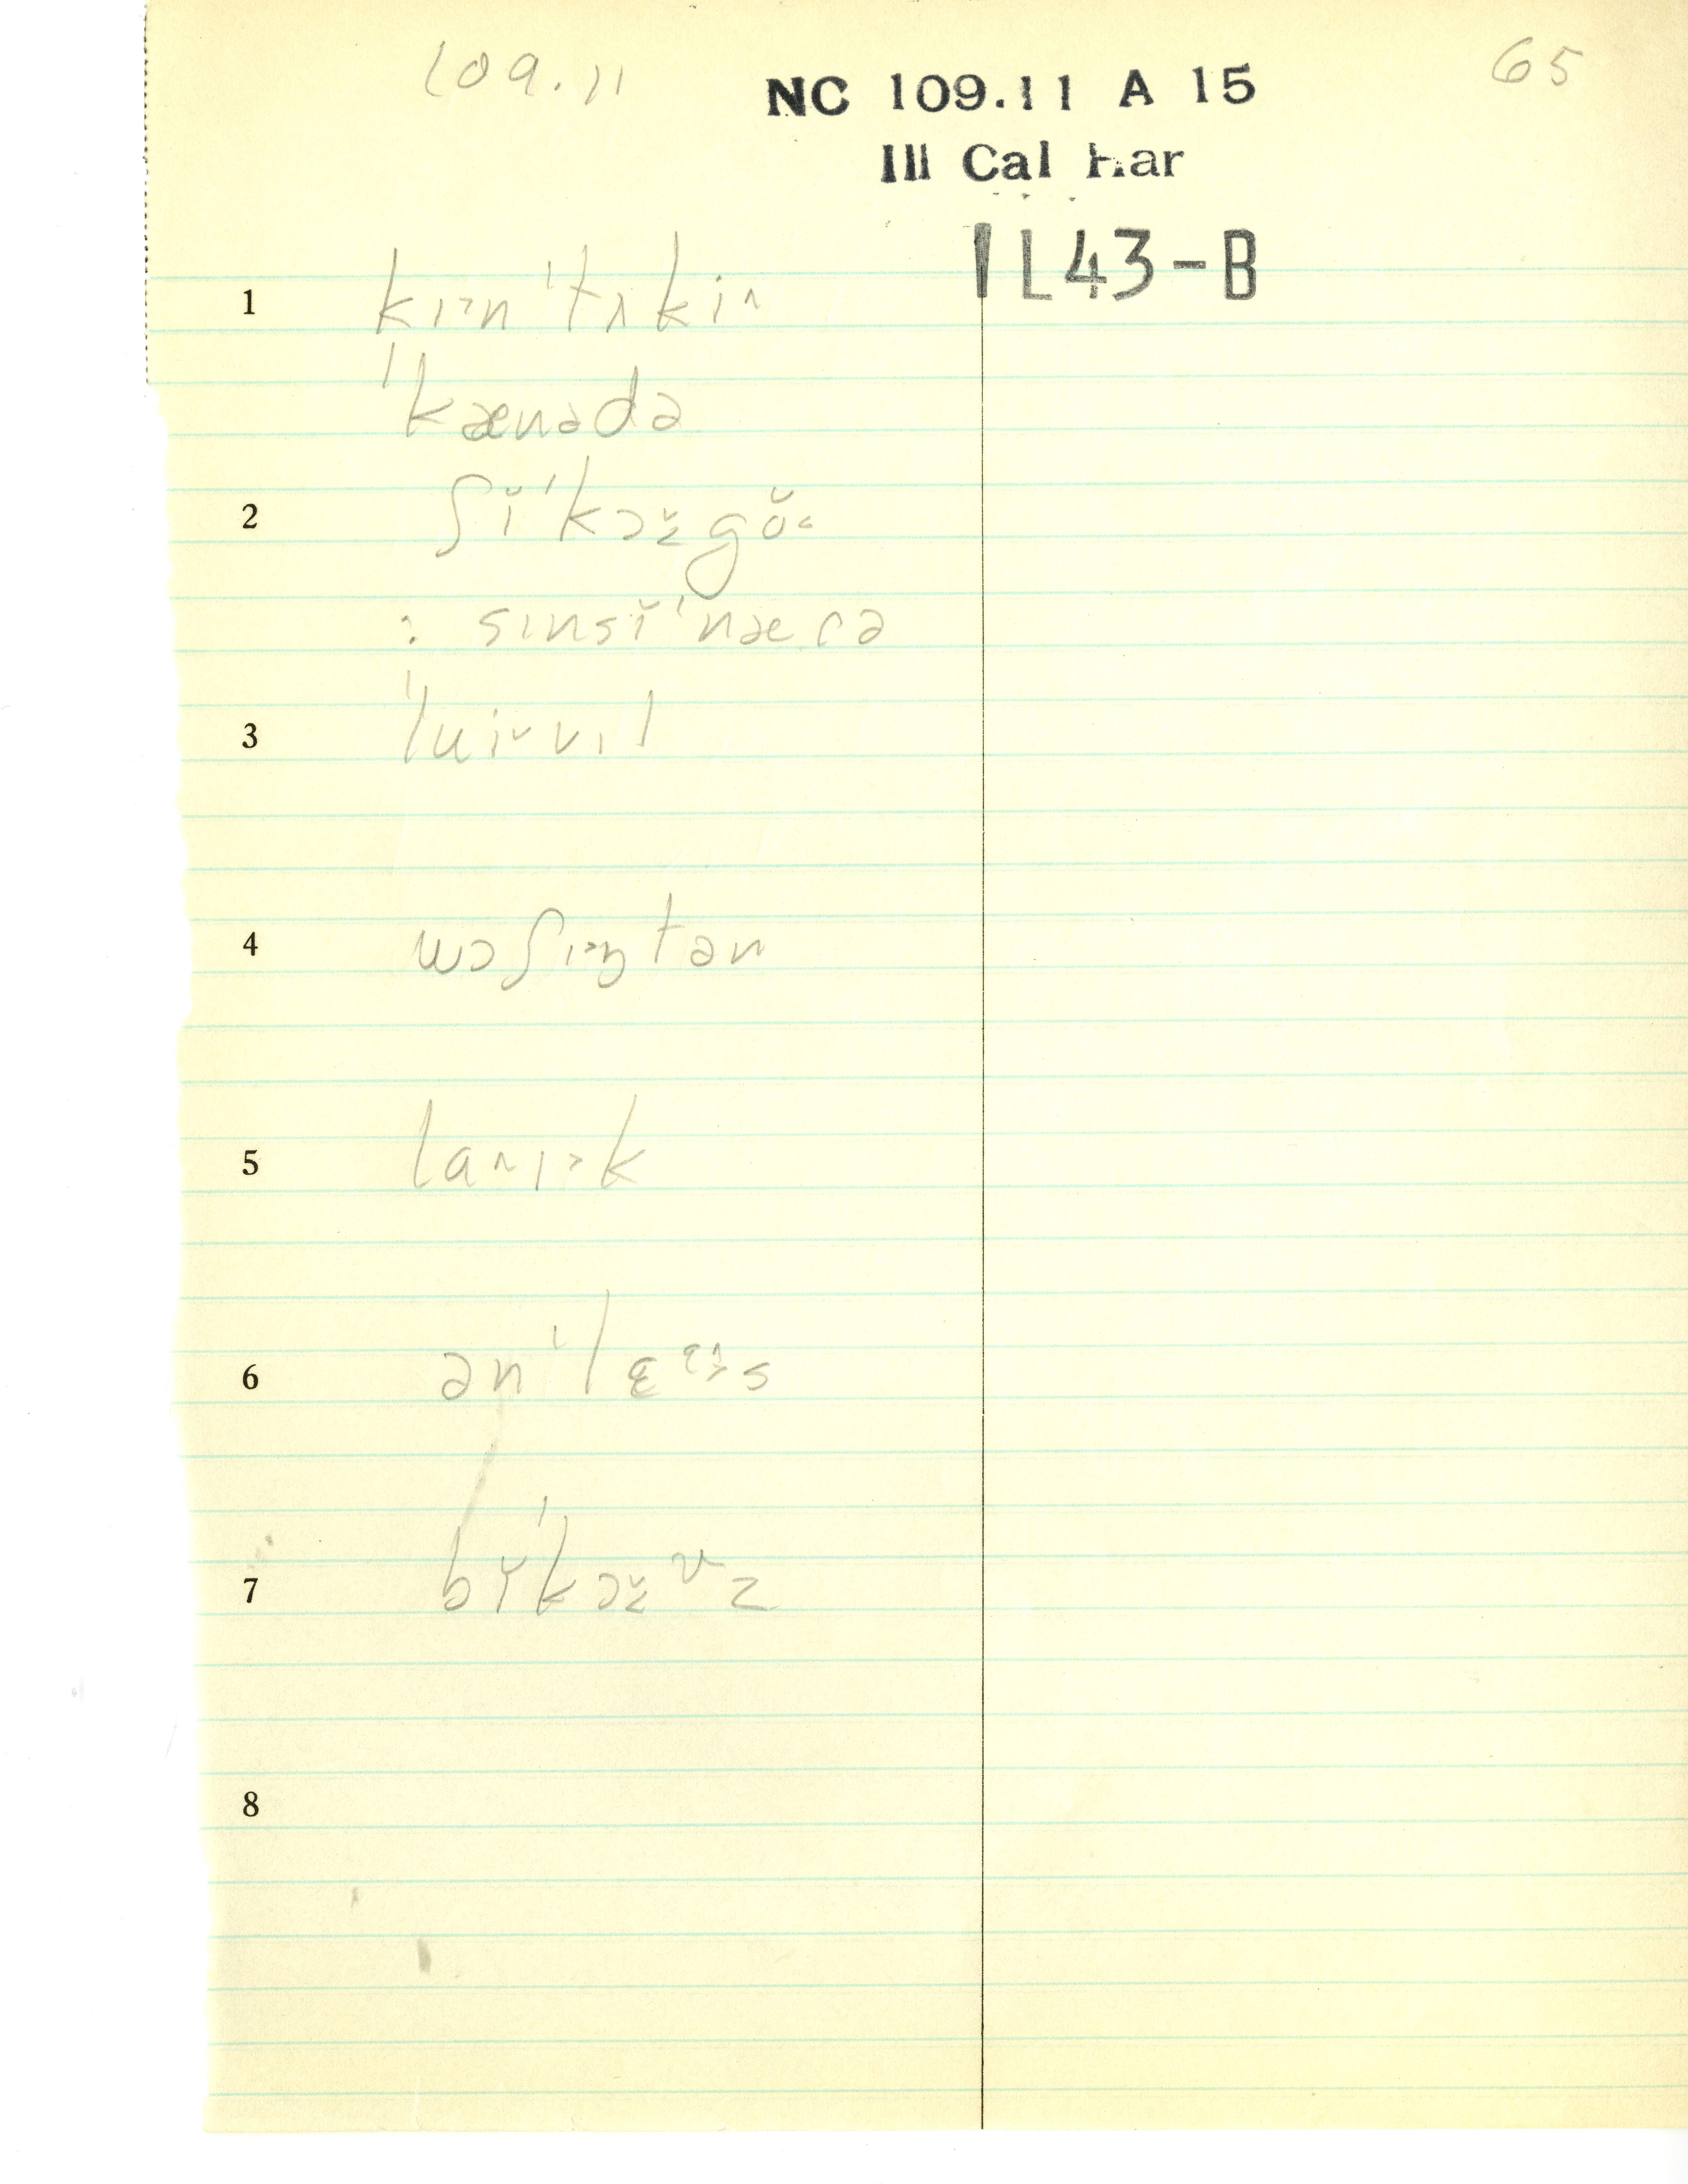 109.11
NC 109.11 A 15
65
Ill Cal Har
IL43-B
1 kɪ˃n ˈtʌki˄
ˈkænədə
2 ʃĭˈkɔɤ̆gŏ˂
: sɪnsĭˈnæɾə
3 ˈluɪ˅vɪl
4 wɔʃɪ˃ŋtən
5 la˄ɪ˃k
6 ənˈlɛ
7 bĭˈkɔ z
8